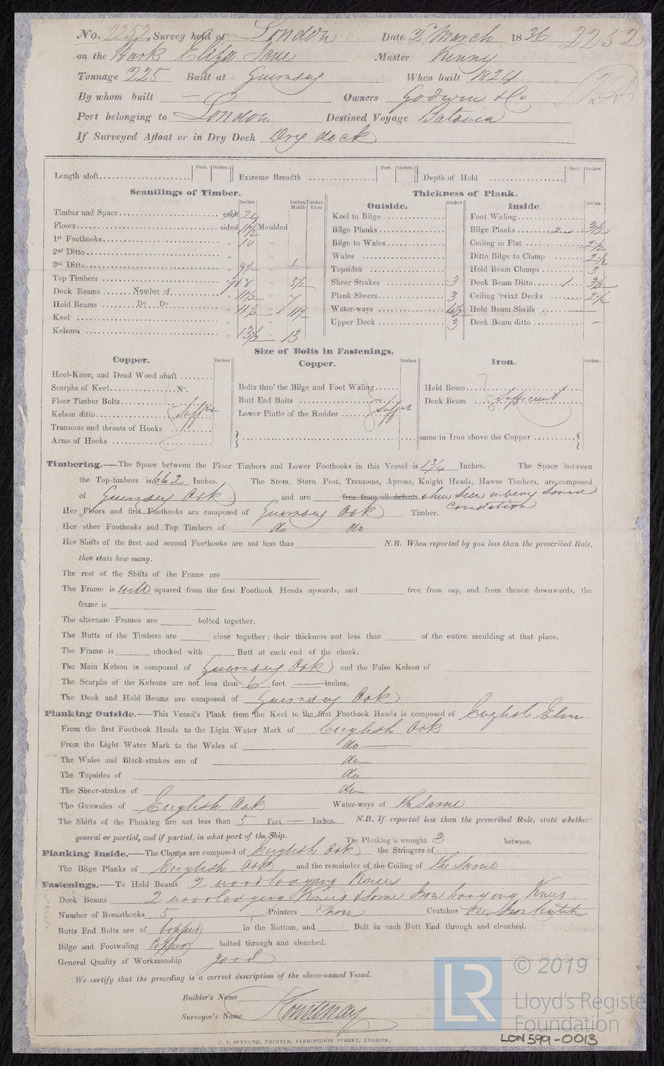 No. 2252 Survey held at London Date 3d March 1836 2252
on the Bark Eliza Jane Master Kenny
Tonnage 225 Built at Guernsey When built 1824
By whom built — Owners Godwin & Co
Port belonging to London Destined Voyage Batavia
If Surveyed Afloat or in Dry Dock Dry dock
Length aloft Feet. Inches. Extreme Breadth Feet. Inches. Depth of Hold Feet. Inches.
Scantlings of Timber.
Timber and Space
Floors sided Moulded
1st Foothooks 10
2nd Ditto
3rd Ditto
Top Timbers
Deck Beams Number of
Hold Beams Do. Do. 7
Keel
Kelsons 13
Thickness of Plank.
Outside.
Keel to Bilge
Bilge Planks
Bilge to Wales
Wales
Topsides
Sheer Strakes 3
Plank Sheers 3
Water-ways
Upper Deck 3
Inside.
Foot Waling
Bilge Planks
Ceiling in Flat
Ditto Bilge to Clamp
Hold Beam Clamps 3
Deck Beam Ditto
Ceiling 'twixt Decks
Hold Beam Shelfs
Deck Beam ditto
Size of Bolts in Fastenings.
Copper.
Heel-Knee, and Dead Wood abaft
Scarphs of Keel No.
Floor Timber Bolts
Kelson ditto
Transoms and throats of Hooks
Arms of Hooks
Copper.
Bolts thro' the Bilge and Foot Waling
Butt End Bolts
Lower Pintle of the Rudder
Iron.
Hold Beam
Deck Beam Sufficient
same in Iron above the Copper
Timbering.—The Space between the Floor Timbers and Lower Foothooks in this Vessel is 1¾ Inches. The Space between
the Top-timbers is Inches. The Stem, Stern Post, Transoms, Aprons, Knight Heads, Hawse Timbers, are composed
of Guernsey Oak and are free from all defects. when seen in very sound
condition
Her Floors and first Foothooks are composed of Guernsey Oak Timber.
Her other Foothooks and Top Timbers of do do
Her Shifts of the first and second Foothooks are not less than N.B. When reported by you less than the prescribed Rule,
then state how many.
The rest of the Shifts of the Frame are
The Frame is well squared from the first Foothook Heads upwards, and free from sap, and from thence downwards, the
frame is
The alternate Frames are bolted together.
The Butts of the Timbers are close together; their thickness not less than of the entire moulding at that place.
The Frame is chocked with Butt at each end of the chock.
The Main Kelson is composed of Guernsey Oak and the False Kelson of
The Scarphs of the Kelsons are not less than 6 feet — inches.
The Deck and Hold Beams are composed of Guernsey Oak
Planking Outside.—This Vessel's Plank from the Keel to the first Foothook Heads is composed of English Elm
From the first Foothook Heads to the Light Water Mark of English Oak
From the Light Water Mark to the Wales of do
The Wales and Black-strakes are of do
The Topsides of do
The Sheer-strakes of do
The Gunwales of English Oak Water-ways of the same
The Shifts of the Planking are not less than 5 Feet — Inches. N.B. If reported less than the prescribed Rule, state whether
general or partial, and if partial, in what part of the Ship. The Planking is wrought 3 between.
Planking Inside.—The Clamps are composed of English Oak the Stringers of
The Bilge Planks of English Oak and the remainder of the Ceiling of the same
Fastenings.—To Hold Beams 2 wood lodging Knees
Deck Beams 2 wood lodging Knees & some Iron hanging Knees
Number of Breasthooks 5 Pointers None Crutches
Butts End Bolts are of Copper in the Bottom, and Bolt in each Butt End through and clenched.
Bilge and Footwaling Copper bolted through and clenched.
General Quality of Workmanship good
We certify that the preceding is a correct description of the above-named Vessel.
Builder's Name
Surveyor's Name Courtenay
C. F. SEYFANG, PRINTER, FARRINGDON STREET, LONDON.
LR © 2019
Lloyd's Register
Foundation
LON599-0013